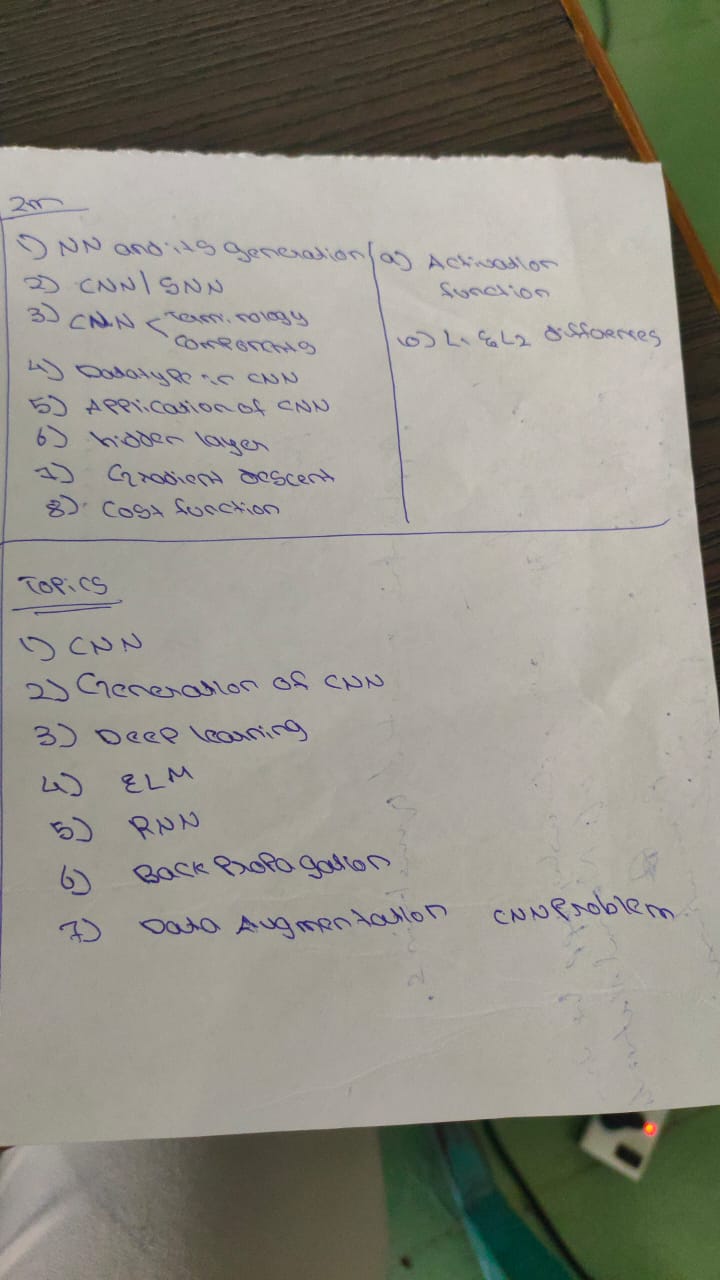 2m
1) NN and its generation
2) CNN / SNN
3) CNN < Terminology
components
4) Datatype in CNN
5) Application of CNN
6) hidden layer
7) Gradient descent
8) Cost function
9) Activation
function
10) L1 & L2
Topics
1) CNN
2) Generation of CNN
3) Deep learning
4) ELM
5) RNN
6) Back Propagation
7) Data Augmentation CNN Problem